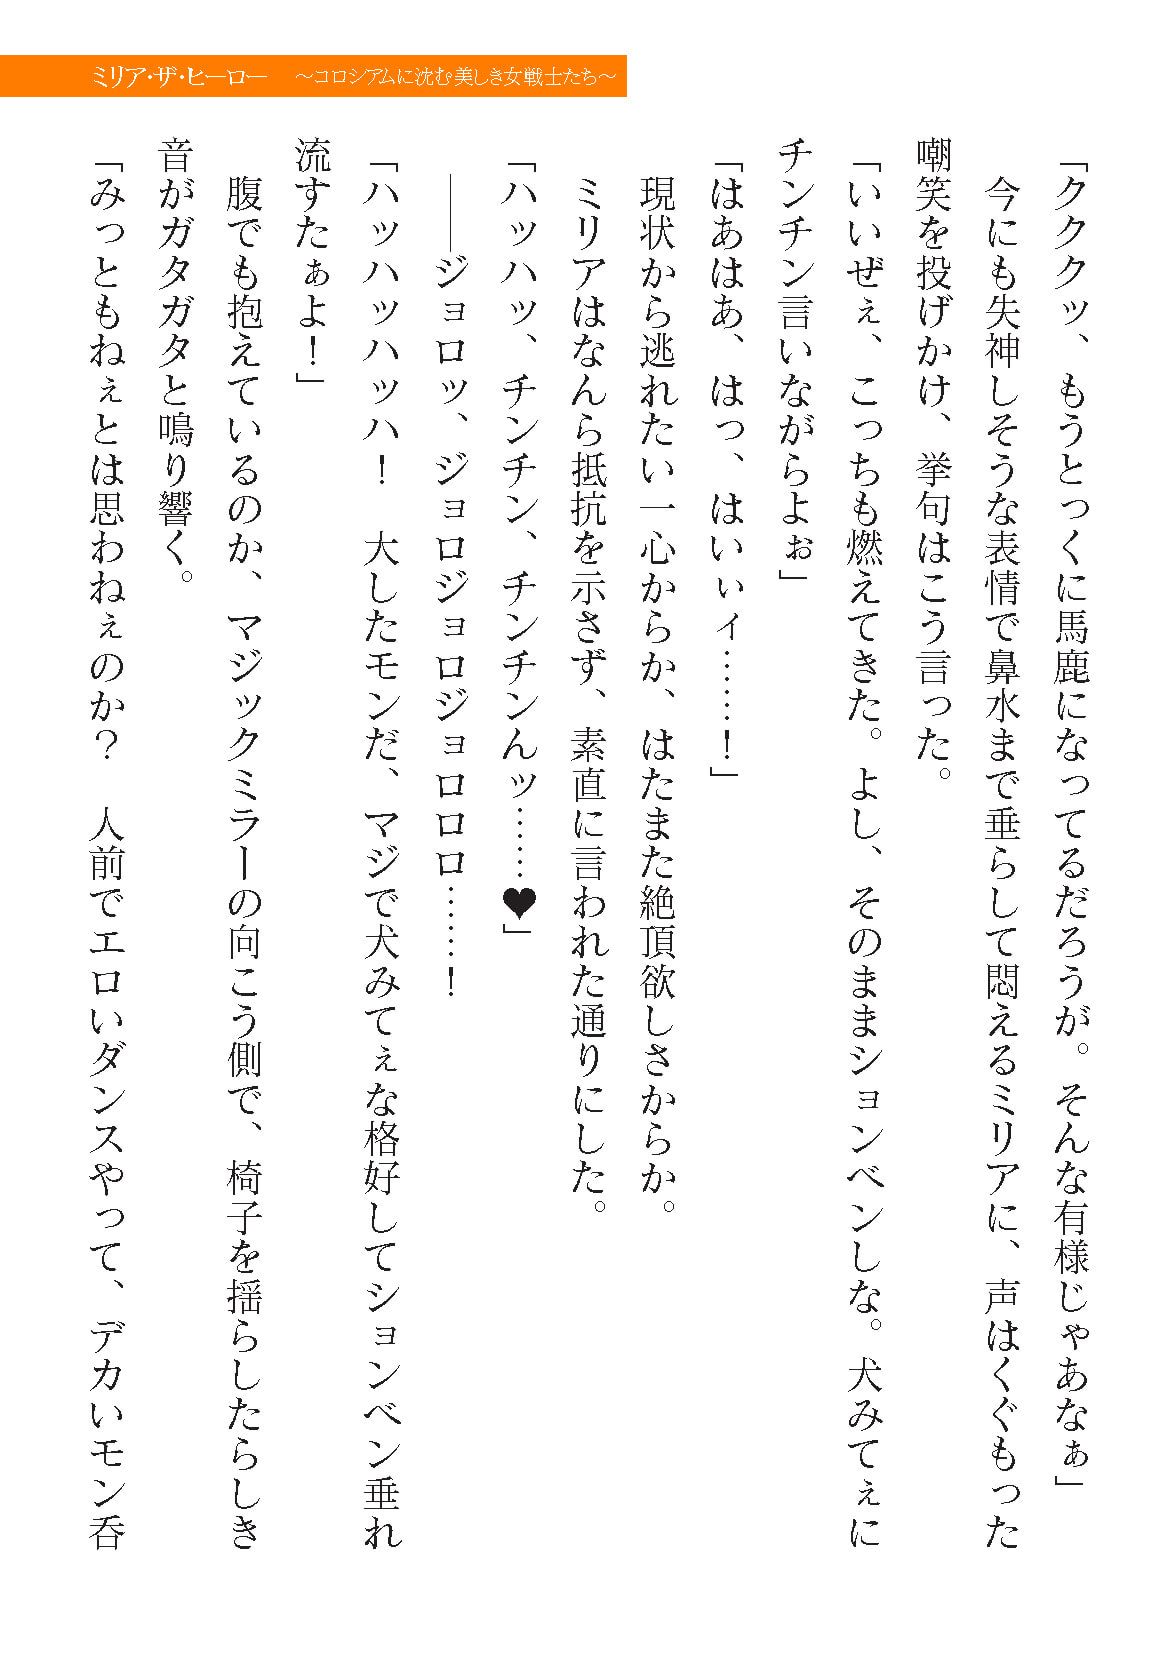 ミリア・ザ・ヒーロー　～コロシアムに沈む美しき女戦士たち～
「クククッ、もうとっくに馬鹿になってるだろうが。そんな有様じゃあなぁ」
　今にも失神しそうな表情で鼻水まで垂らして悶えるミリアに、声はくぐもった
嘲笑を投げかけ、挙句はこう言った。
「いいぜぇ、こっちも燃えてきた。よし、そのままションベンしな。犬みてぇに
チンチン言いながらよぉ」
「はあはあ、はっ、はいぃィ……！」
　現状から逃れたい一心からか、はたまた絶頂欲しさからか。
　ミリアはなんら抵抗を示さず、素直に言われた通りにした。
「ハッハッ、チンチン、チンチンんッ……♥」
　――ジョロッ、ジョロジョロジョロロロ……！
「ハッハッハッハ！　大したモンだ、マジで犬みてぇな格好してションベン垂れ
流すたぁよ！」
　腹でも抱えているのか、マジックミラーの向こう側で、椅子を揺らしたらしき
音がガタガタと鳴り響く。
「みっともねぇとは思わねぇのか？　人前でエロいダンスやって、デカいモン呑